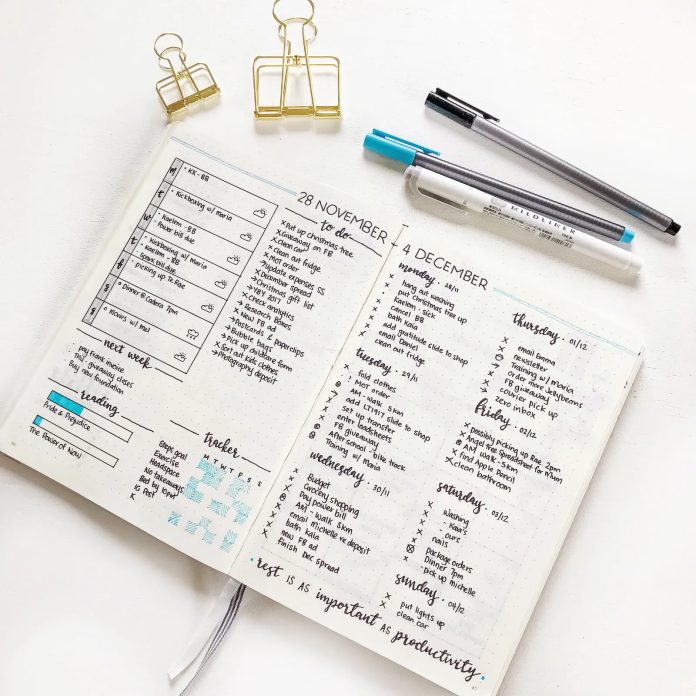 28 NOVEMBER
m
• KK - BB
t
• Kickboxing w/ maria
w
• Kaelem - BB
• Power bill due
t
• Kickboxing w/ Maria
• Kaelem - BB
• Spark bill due
f
• picking up Te Rae
s
• Dinner @ Cadera 7pm
s
• movies w/ mel
to do
x Put up christmas tree
x Giveaway on FB
x Clean car
x Clean out fridge
x Most order
→ December spread
→ Christmas gift list
→ YBY 2017
x Check analytics
x Research boxes
x New FB ad
→ Postcards & paperclips
→ Bubble bags
x Pick up childcare form
x Sort out kids clothes
→ Photography deposit
next week
• pay Frank invoice
• TN1 giveaway closes
Buy new foundation
reading
Pride & Prejudice
The Power of Now
tracker
M T W T F S S
Steps goal
Exercise
Headspace
No takeaways
Bed by 10pm
IG Post
K
4 DECEMBER
monday . 28/11
x hang out washing
x put christmas tree up
x Kaelem - sick
x cancel BB
x bath Kaia
x add gratitude slide to shop
x email Daniel
x clean out fridge
tuesday . 29/11
x fold clothes
x Most order
AM - walk 5km
x add LT1917 slide to shop
x set up transfer
x enter loadsheets
x FB giveaway
After school - bike track
Training w/ Maria
wednesday . 30/11
x Budget
x Grocery shopping
x Pay power bill
AM - Walk 5km
x email Michelle re deposit
x bath Kaia
x new FB ad
x finish Dec spread
thursday . 01/12
x email Emma
x newsletter
Training w/ Maria
→ order more Jellybeans
x FB giveaway
x courier pick up
→ zero inbox
friday . 02/12
x possibly picking up Rae 2pm
x Angel tree Spreadsheet for Mum
AM walk - 5km
x find Apple Pencil
x clean bathroom
saturday . 03/12
x washing
x - Kaia's
x - ours
x nails
x package orders
Dinner 7pm
- pick up michelle
sunday . 04/12
x put lights up
x clean car
• rest IS AS important AS productivity.
MILDLINER